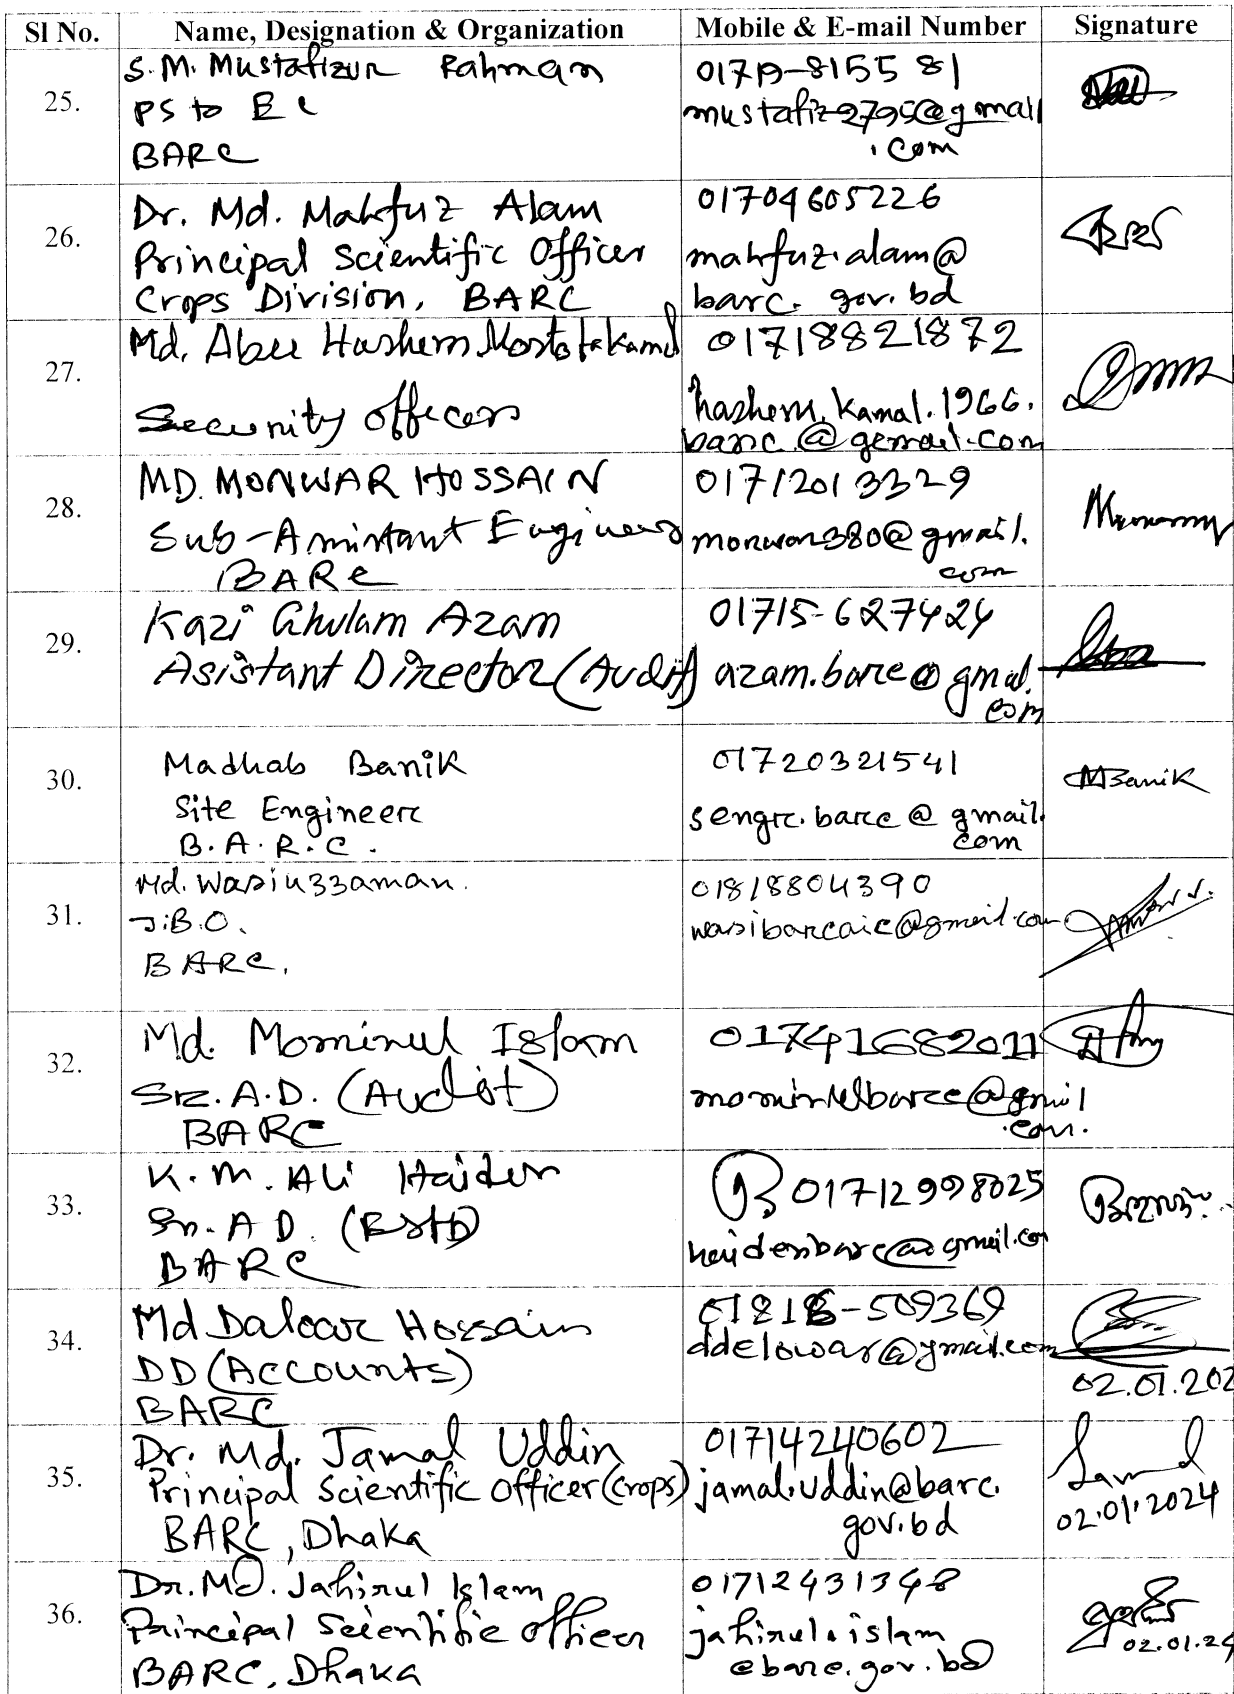 Sl No. Name, Designation & Organization Mobile & E-mail Number Signature
25.
S.M. Mustafizur Rahman
PS to EC
BARC
mustafiz2795@gmail
.com
26.
Dr. Md. Mahfuz Alam
Principal Scientific Officer
Crops Division, BARC
01704605226
mahfuz.alam@
barc. gov. bd
27.
Md. Abu Hashem Mostofa Kamal
Security officer
01718821872
hashem.kamal.1966.
barc.@gemail.com
28.
MD. MONWAR HOSSAIN
Sub-Assistant Engineer
BARC
01712013329
monwar380@gmail.
com
29.
Kazi Ghulam Azam
Asistant Director (Audit)
01715-627424
azam.barc@gmail.
com
30.
Madhab Banik
Site Engineer
B.A.R.C.
01720321541
sengr.barc@gmail.
com
MBanik
31.
Md. Wasiuzzaman.
J.B.O.
BARC.
01818804390
wasibarcaic@gmail.com
32.
Md. Mominul Islam
Sr. A.D. (Audit)
BARC
01741682011
mominulbarc@gmil
.com.
33.
K.M. Ali Haider
Sr. A D. (Estt)
BARC
01712998025
haiderbarc@gmail.com
34.
Md Daloar Hossain
DD (Accounts)
BARC
ddelowar@gmail.com
02.01.202
35.
Dr. Md. Jamal Uddin
Principal Scientific Officer (Crops)
BARC, Dhaka
01714240602
jamal.uddin@barc.
gov.bd
Jamal
02.01.2024
36.
Dr. Md. Jahirul Islam
Principal Scientific Officer
BARC, Dhaka
01712431348
jahirul.islam
@barc.gov.bd
02.01.24